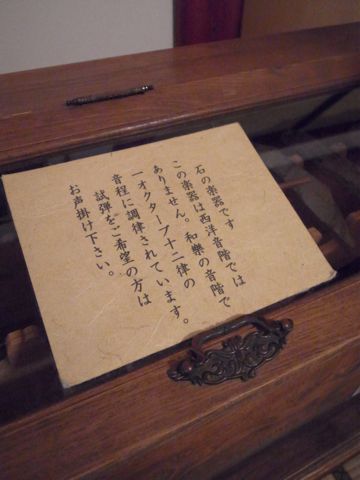 石の楽器です
この楽器は西洋音階では
ありません。和樂の音階で
一オクターブ十二律の
音程に調律されています。
試弾をご希望の方は
お声掛け下さい。